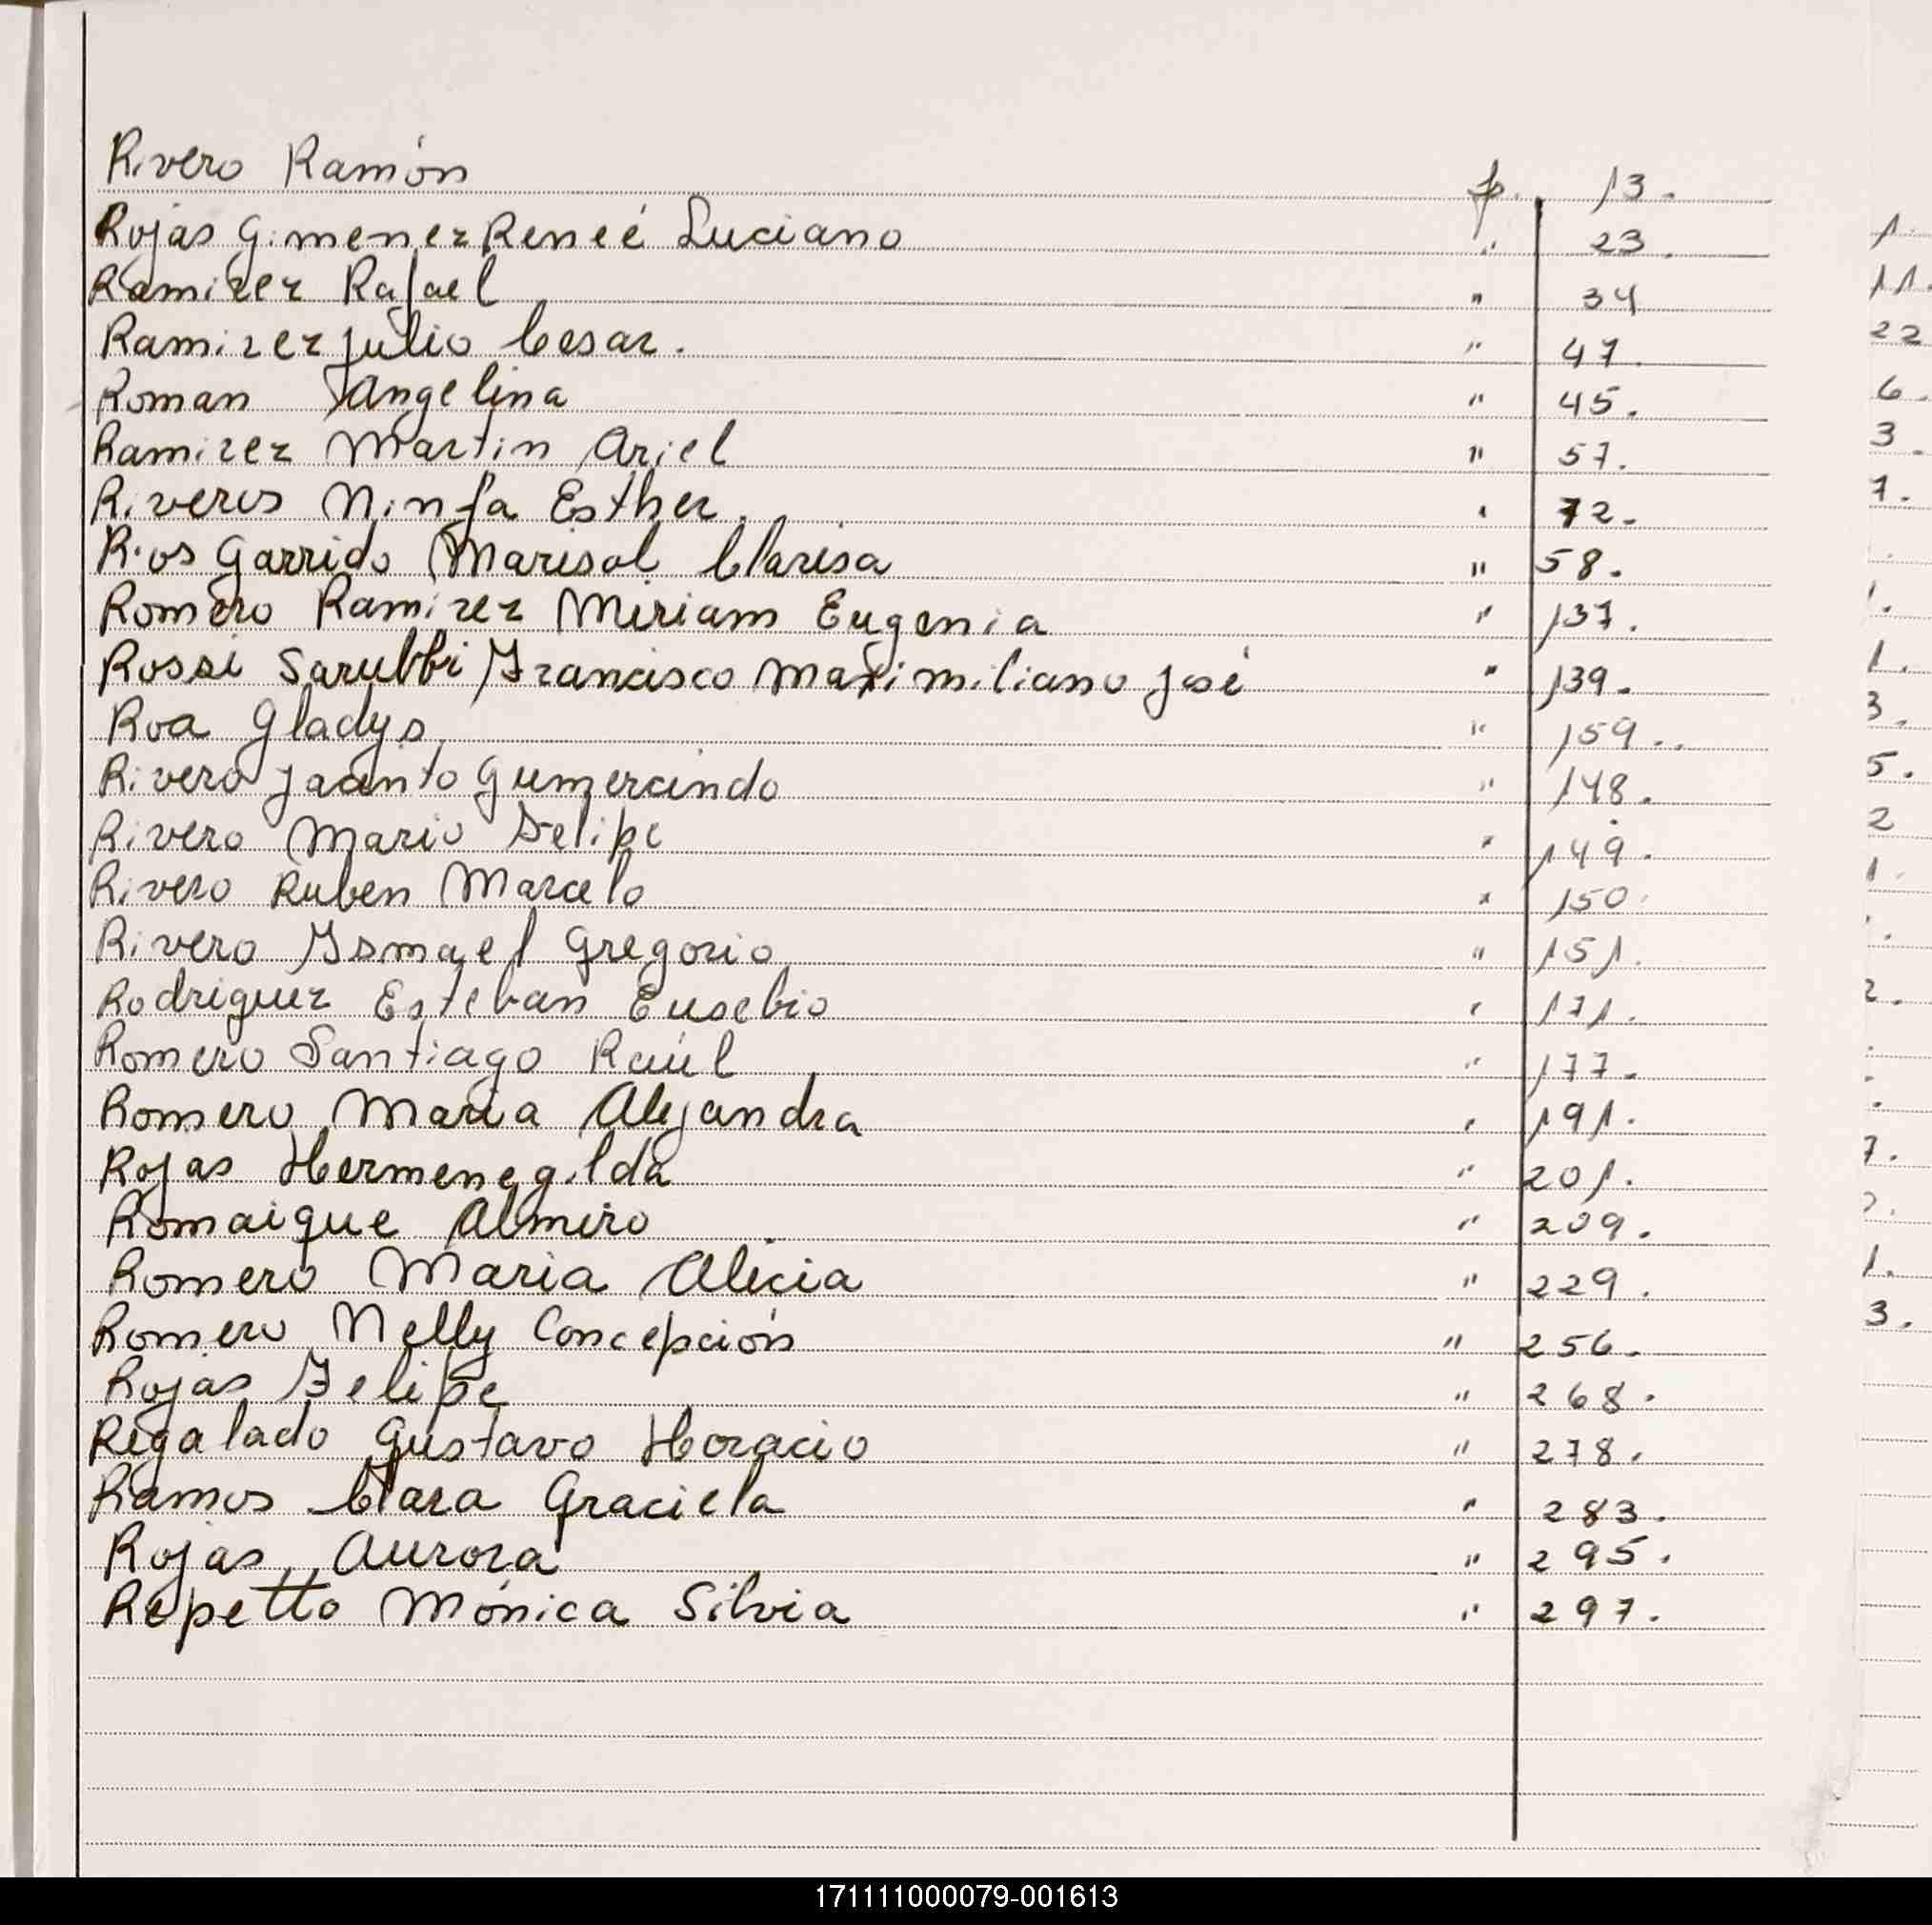 Rivero Ramón f. 13.
Rojas Gimenez Reneé Luciano " 23.
Ramirez Rafael " 34
Ramirez Julio Cesar. " 47.
Roman Angelina " 45.
Ramirez Martin Ariel " 57.
Riveros Ninfa Esther. " 72.
Rios Garrido Marisol Clarisa " 58.
Romero Ramirez Miriam Eugenia " 137.
Rossi Sarubbi Francisco Maximiliano José " 139.
Roa Gladys " 159.
Rivero Jacinto Gumercindo " 148.
Rivero Mario Felipe " 149.
Rivero Ruben Marcelo " 150.
Rivero Ismael Gregorio " 151.
Rodriguez Esteban Eusebio " 171.
Romero Santiago Raúl " 177.
Romero Maria Alejandra " 191.
Rojas Hermenegilda " 201.
Romaique Almiro " 209.
Romero Maria Alicia " 229.
Romero Nelly Concepción " 256.
Rojas Felipe " 268.
Regalado Gustavo Horacio " 278.
Ramos Clara Graciela " 283.
Rojas Aurora " 295.
Repetto Mónica Silvia " 297.
171111000079-001613